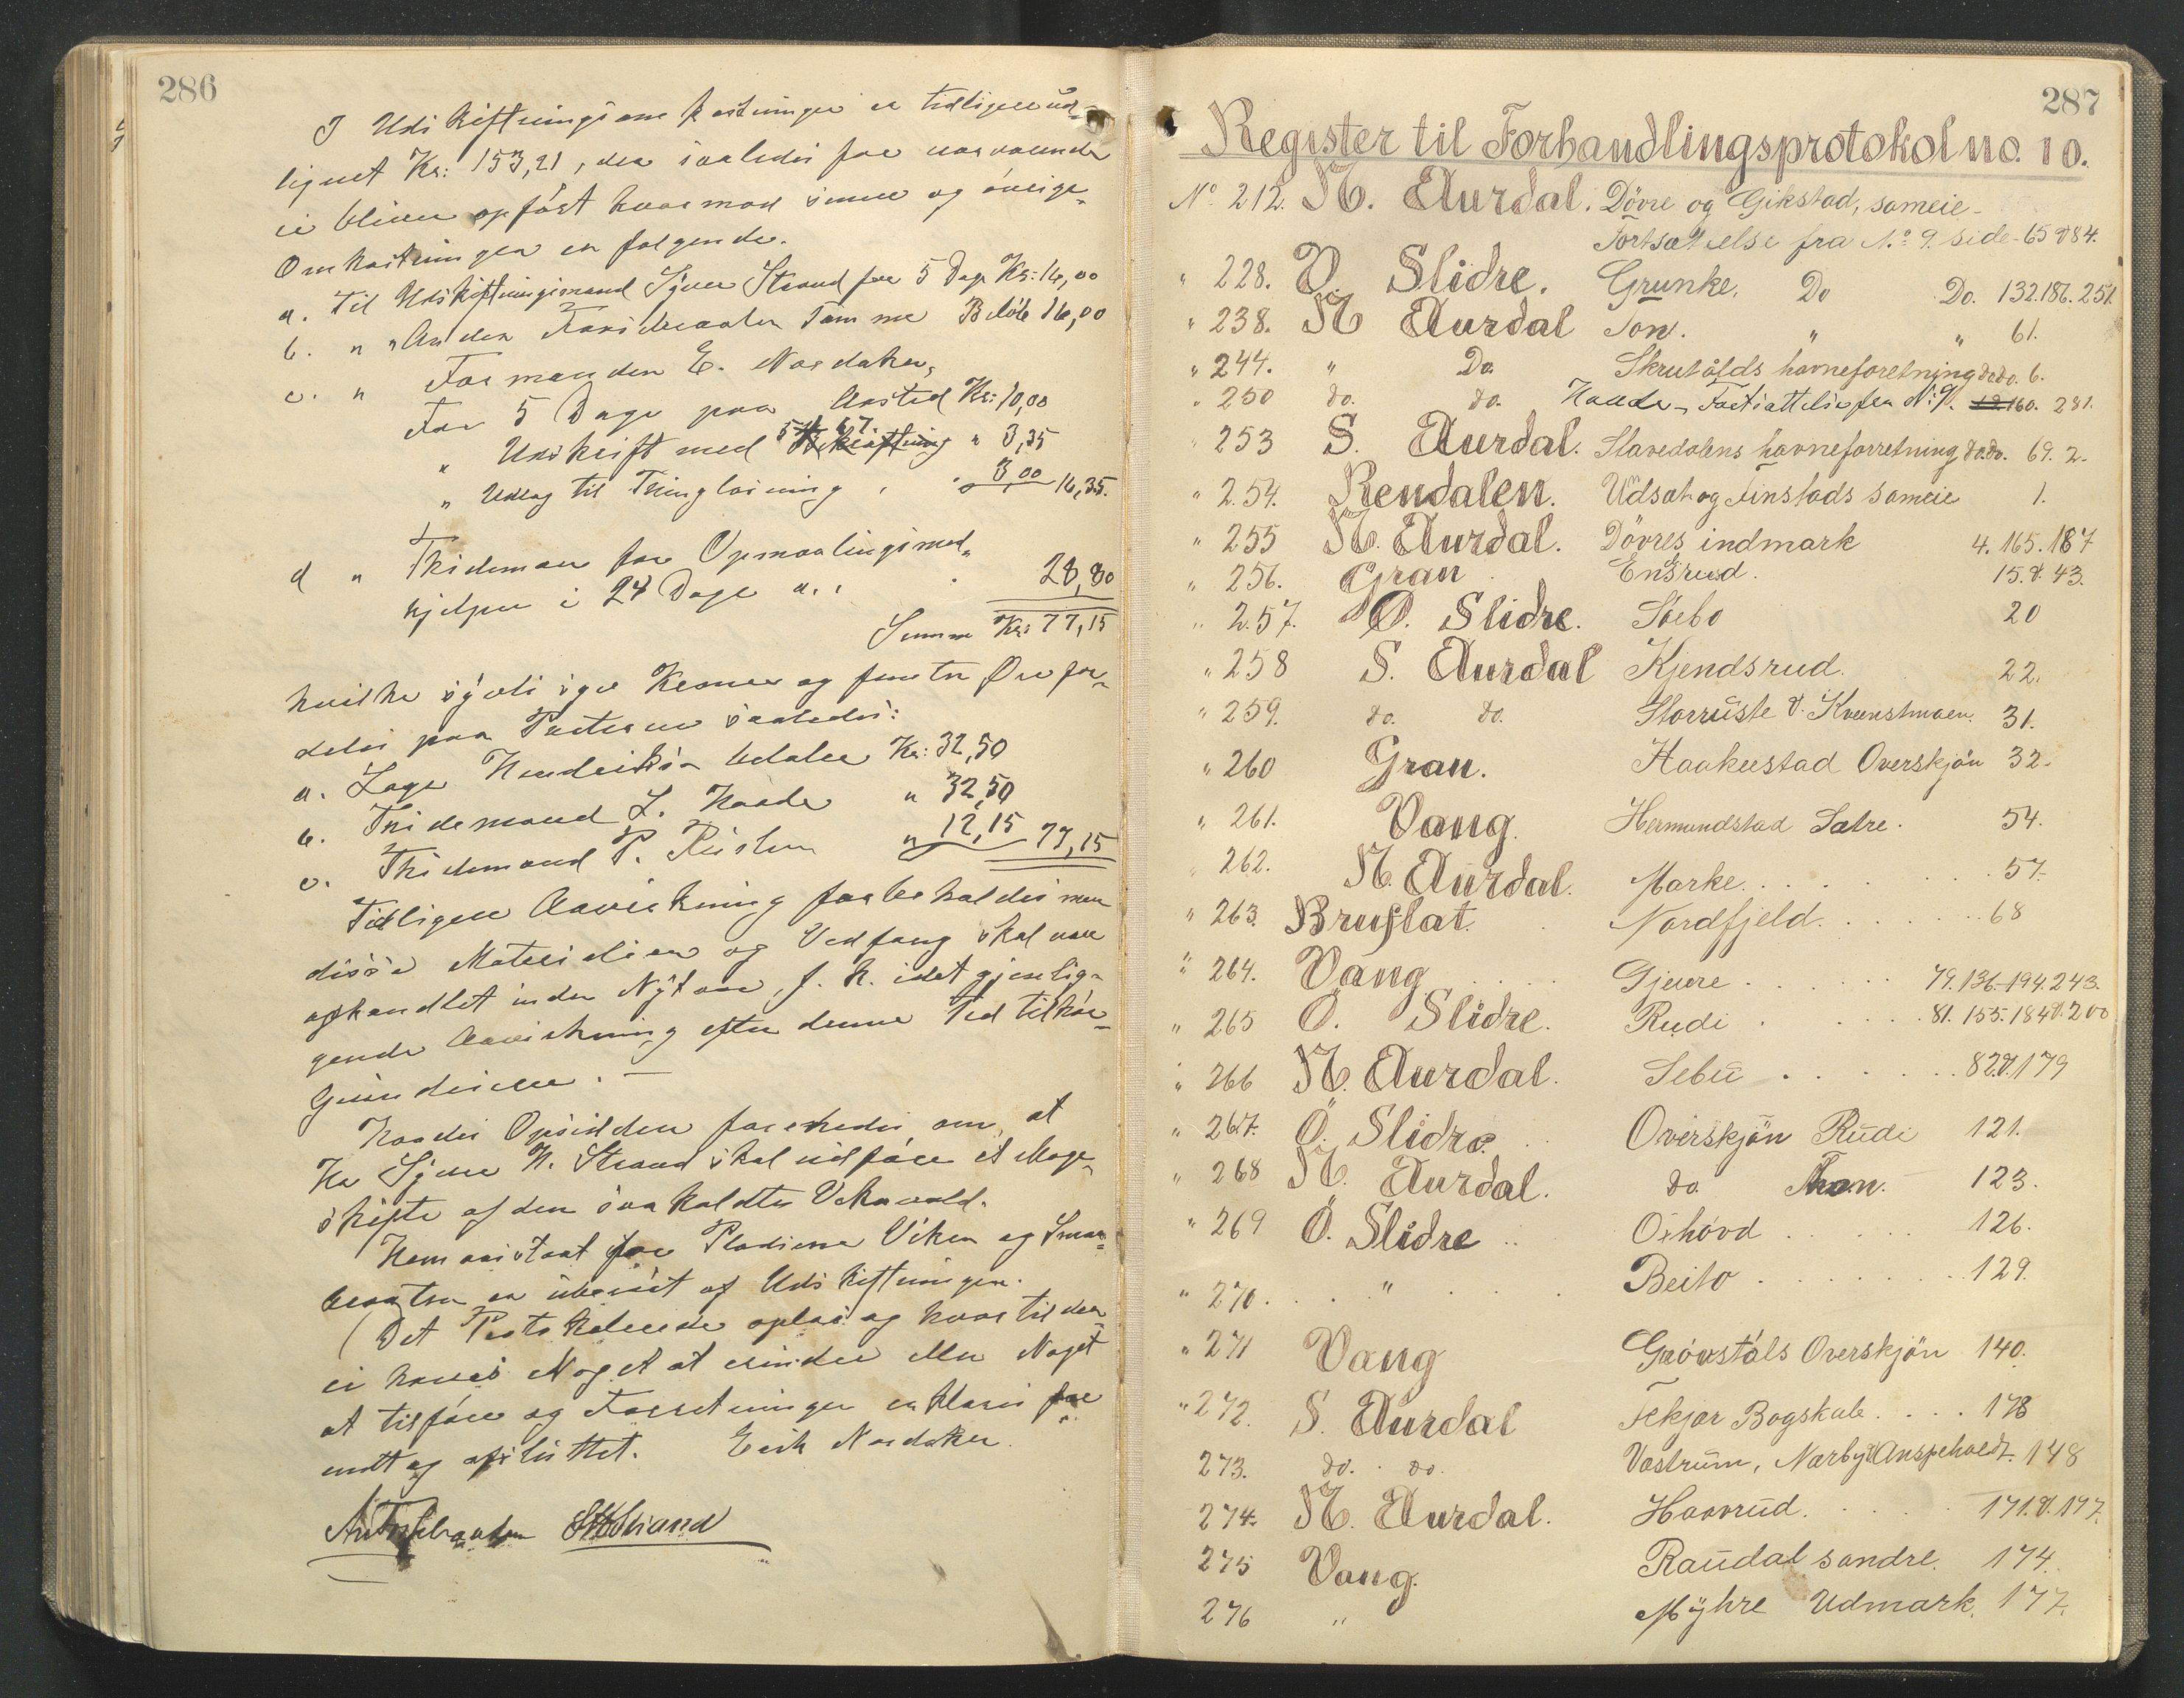 286
I Udskiftningsomkostninger er tidligere ud-
lignet Kr: 153,21, der saaledes for nærværende
ei bliver opført hvormod denne og øvrige
Omkostninger er følgende.
a. Til Udskiftningsmand Syver Strand for 5 Dage Kr: 16,00
b. " " Anden Samme Beløb 16,00
c. " Formanden E. Nordaker,
For 5 Dage paa Aasted Kr: 10,00
" Udskrift med Bekræftning " 3,35
" Udlag til Tinglæsning " 3,00 16,35.
d " Thidemann for Opmaalingsmed-
hjelper i 24 Dage a. : 28,80
Summa Kr: 77,15
hvilke sytti syv Kroner og femten Øre for-
deles paa Parterne saaledes:
a. Lage Hendriksen betaler Kr: 32,50
b. Thidemand L. Haade " 32,50
c. Thidemand P. Risten " 12,15 77,15
Tidligere Aavirkning forbeholdes men
disse Materialier og Vedfang skal være
ophandlet inden Nytaar, f. k. idet gjenlig-
gende Aavirkning efter denne Tid tilhør-
Grundeieren. —
Haades Opsidden forenedes om, at
Hr Syver H. Strand skal udføre et Mage-
skifte af den saakaldte
Hemmistaat for Pladsene Viken og
er uberørt af Udskiftningen.
Det Protokollerede oplæst og hvortil der
ei havdes Noget at erindre eller Noget
at tilføre og Forretningen erklæres for
endt og afsluttet. Erik Nordaker.
Strand
287
Register til Forhandlingsprotokol no. 10.
No. 212. N. Aurdal. Dövre og Gikstad, sameie -
Fortsættelse fra No. 9. side - 65 & 84.
" 228. V. Slidre. Grunke, Do Do. 132. 186. 251.
" 238. N Aurdal Ton. " " 61.
" 244. " Do. Skrutölds havneforetning do do. 6.
" 250 do. do. Haade - Fortsættelse fra N: 9. 160. 281.
" 253 S. Aurdal. Slavedalens havneforretning do. do. 69. 2.
" 254. Rendalen. Udsat og Finstads sameie 1.
" 255 N. Aurdal. Dövres indmark 4. 165. 187
" 256. Gran Engrud. 15. & 43.
" 257. Ö. Slidre. Söebo 20
" 258 S. Aurdal Kjendsrud. 22.
" 259. do. do. Storruste & Kvernstmoen. 31.
" 260 Gran. Haakenstad Overskjön 32.
" 261. Vang. Hermundstad Sætre. 54.
" 262. N. Aurdal. Marke. 57.
" 263. Bruflat. Nordfjeld. 68
" 264. Vang Gjeure 79. 136. 194. 243.
" 265 Ö. Slidre. Rudi 81. 155. 184 & 200
" 266 N. Aurdal. Sebu 82. & 179
" 267. Ö. Slidre. Overskjön Rudi 121.
" 268 N. Aurdal. do. 123.
" 269 Ö. Slidre Oihövd 126.
" 270. " Beito 129.
" 271 Vang Grövstöls Overskjön 140.
" 272. S. Aurdal Fekjær Bogskale. 178
273. do. do. Vastrum, Nærby & Anspeholdt. 148
274. N. Aurdal. Haavrud. 171. & 197.
275 Vang. Raudal søndre. 174.
276 " Myhre Udmark. 177.